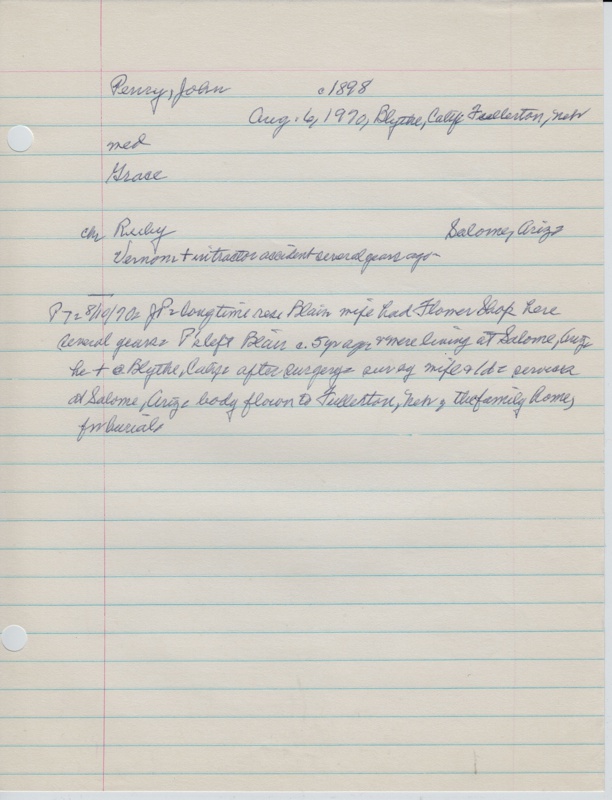 Penry, John c1898
Aug. 6, 1970, Blythe, Calif Fullerton, Neb
med
Grace
chr Ruby Salome, Ariz=
Vernon= + in tractor accident several years ago-
PT= 8/10/70= JP= longtime res= Blair= wife had Flower Shop here
several years= P's left Blair c. 5 yr ago & were living at Salome, Ariz=
he + @ Blythe, Calif= after surgery= surv by wife & 1d= services
at Salome, Ariz= body flown to Fullerton, Neb, the family home,
for burial=